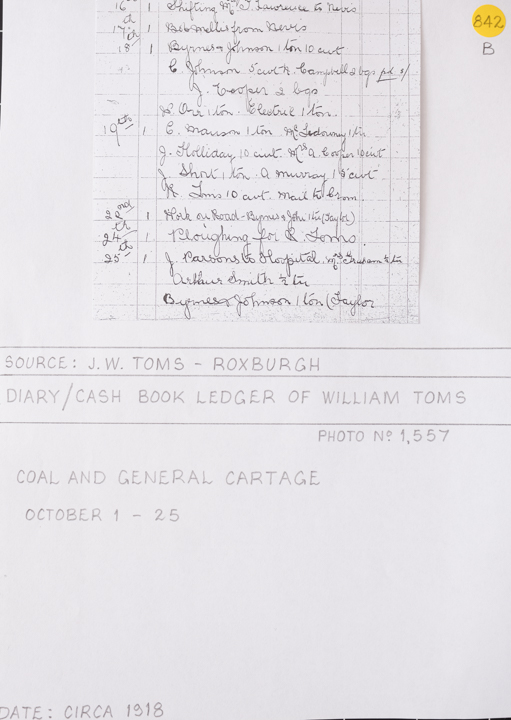 842
B
16 1 Shifting Mrs T. Lawrence to Nevis
17th 1 Bob Mellis from Bevis
18th 1 Byrnes & Johnson 1 ton 10 cwt
C. Johnson 5 cwt K. Campbell 2 bgs pd
J. Cooper 2 bgs
Orr 1 ton. Electric 1 ton.
19th 1 C. Manson 1 ton
J. Holliday 10 cwt. Mrs A. Cooper 10 cwt
J. Short 1 ton. A Murray 15 cwt
R. Toms 10 cwt.
22nd 1 Work on Road - Byrnes & John 1 tn (Taylor)
24th 1 Ploughing for R. Toms.
25th 1 J. Parsons to Hospital. Mrs Graham ½ tn
Arthur Smith ½ tn
Byrnes & Johnson 1 ton (Taylor
SOURCE: J.W. TOMS - ROXBURGH
DIARY/CASH BOOK LEDGER OF WILLIAM TOMS
PHOTO Nº 1,557
COAL AND GENERAL CARTAGE
OCTOBER 1 - 25
DATE: CIRCA 1918